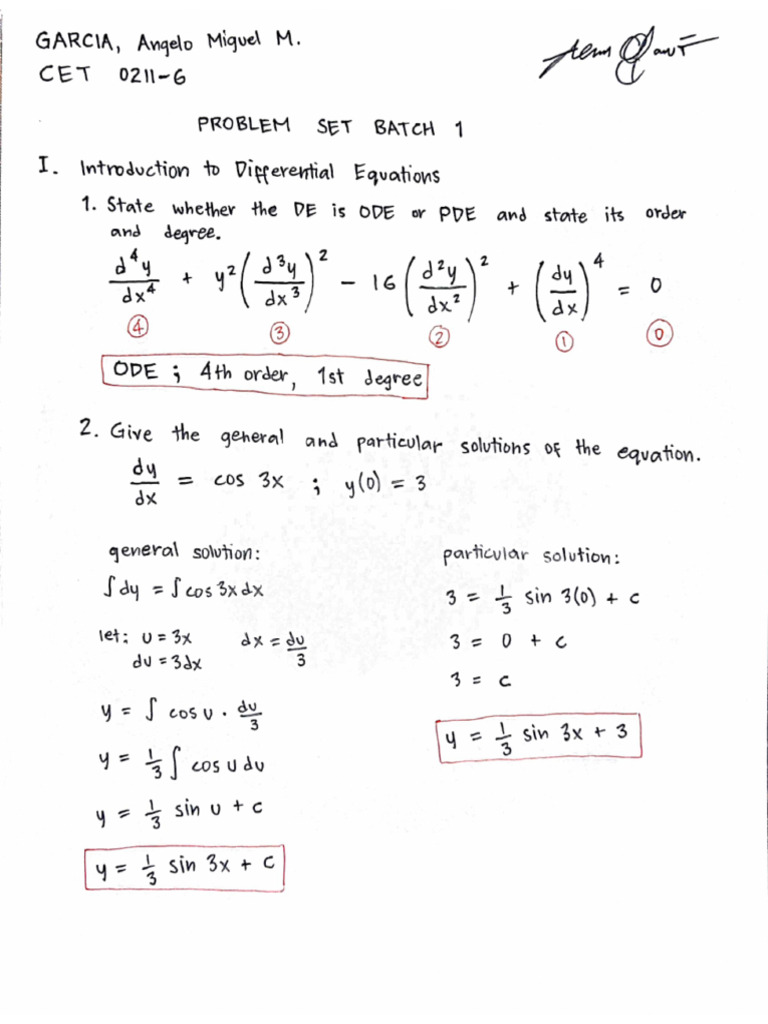 GARCIA, Angelo Miguel M.
CET 0211-6
PROBLEM SET BATCH 1
I. Introduction to Differential Equations
1. State whether the DE is ODE or PDE and state its order
and degree.
d⁴y/dx⁴ + y²(d³y/dx³)² - 16(d²y/dx²)² + (dy/dx)⁴ = 0
④ ③ ② ① ⓪
ODE ; 4th order, 1st degree
2. Give the general and particular solutions of the equation.
dy/dx = cos 3x ; y(0) = 3
general solution:
∫dy = ∫cos 3x dx
let: u = 3x dx = du/3
du = 3dx
y = ∫ cos u · du/3
y = 1/3 ∫ cos u du
y = 1/3 sin u + c
y = 1/3 sin 3x + c
particular solution:
3 = 1/3 sin 3(0) + c
3 = 0 + c
3 = c
y = 1/3 sin 3x + 3